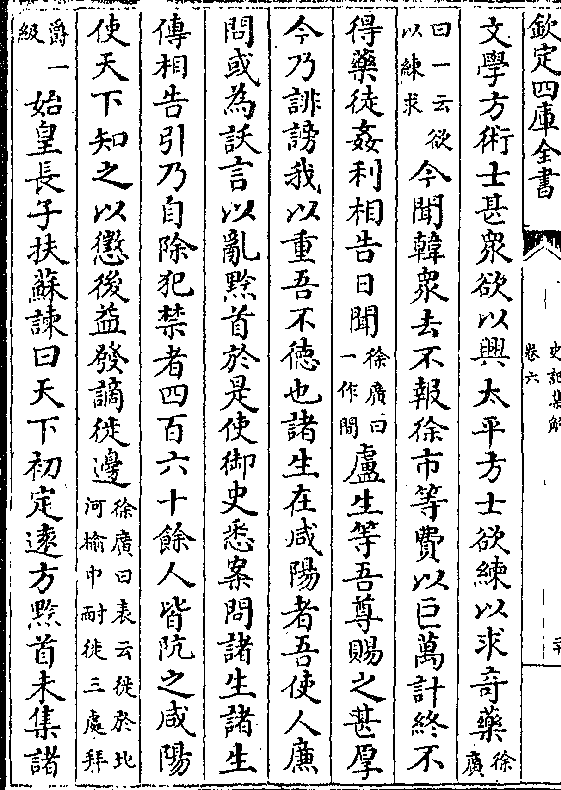 欽定四庫全書
史記集解
卷六
文學方術士甚衆欲以興太平方士欲練以求奇藥徐廣
曰一云欲以練求今聞韓衆去不報徐市等費以巨萬計終不
得藥徒姦利相告日聞徐廣曰一作間盧生等吾尊賜之甚厚
今乃誹謗我以重吾不德也諸生在咸陽者吾使人廉
問或為訞言以亂黔首於是使御史悉案問諸生諸生
傳相告引乃自除犯禁者四百六十餘人皆阬之咸陽
使天下知之以懲後益發謫徙邊徐廣曰表云徙於北河榆中耐徙三處拜
爵一級始皇長子扶蘇諫曰天下初定遠方黔首未集諸